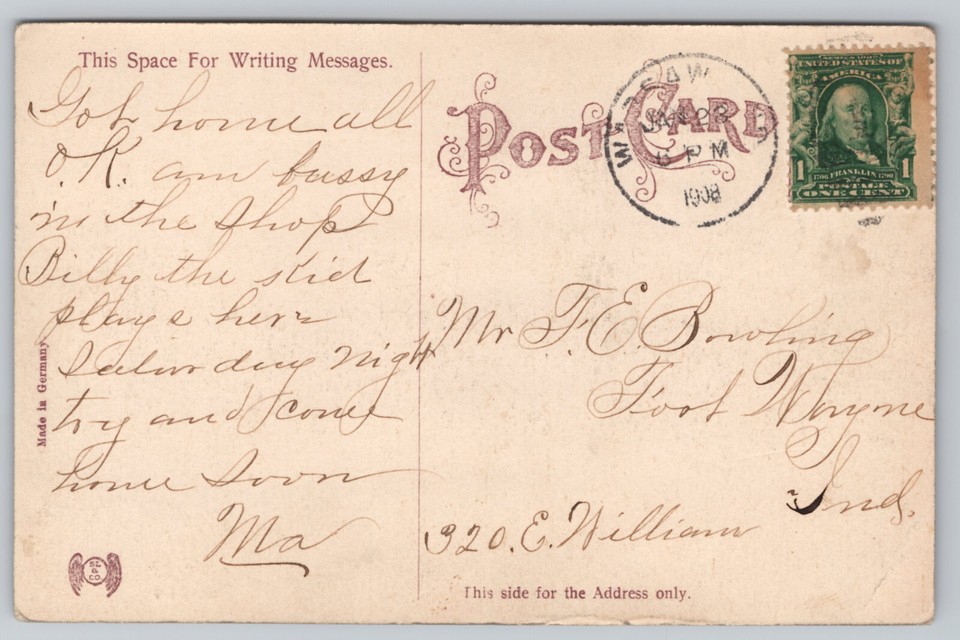 This Space For Writing Messages.
Got home all
O.K. am bussy
in the shop
Billy the Kid
plays here
Saturday night
try and come
home soon
Ma
Made in Germany
POST CARD
JAN 23
6 PM
1908
SERIES 1902
UNITED STATES OF
AMERICA
1 1
1706 FRANKLIN 1790
POSTAGE
ONE CENT
Mr F. E. Bowling
Foot Wayne
Ind.
320. E. William
This side for the Address only.